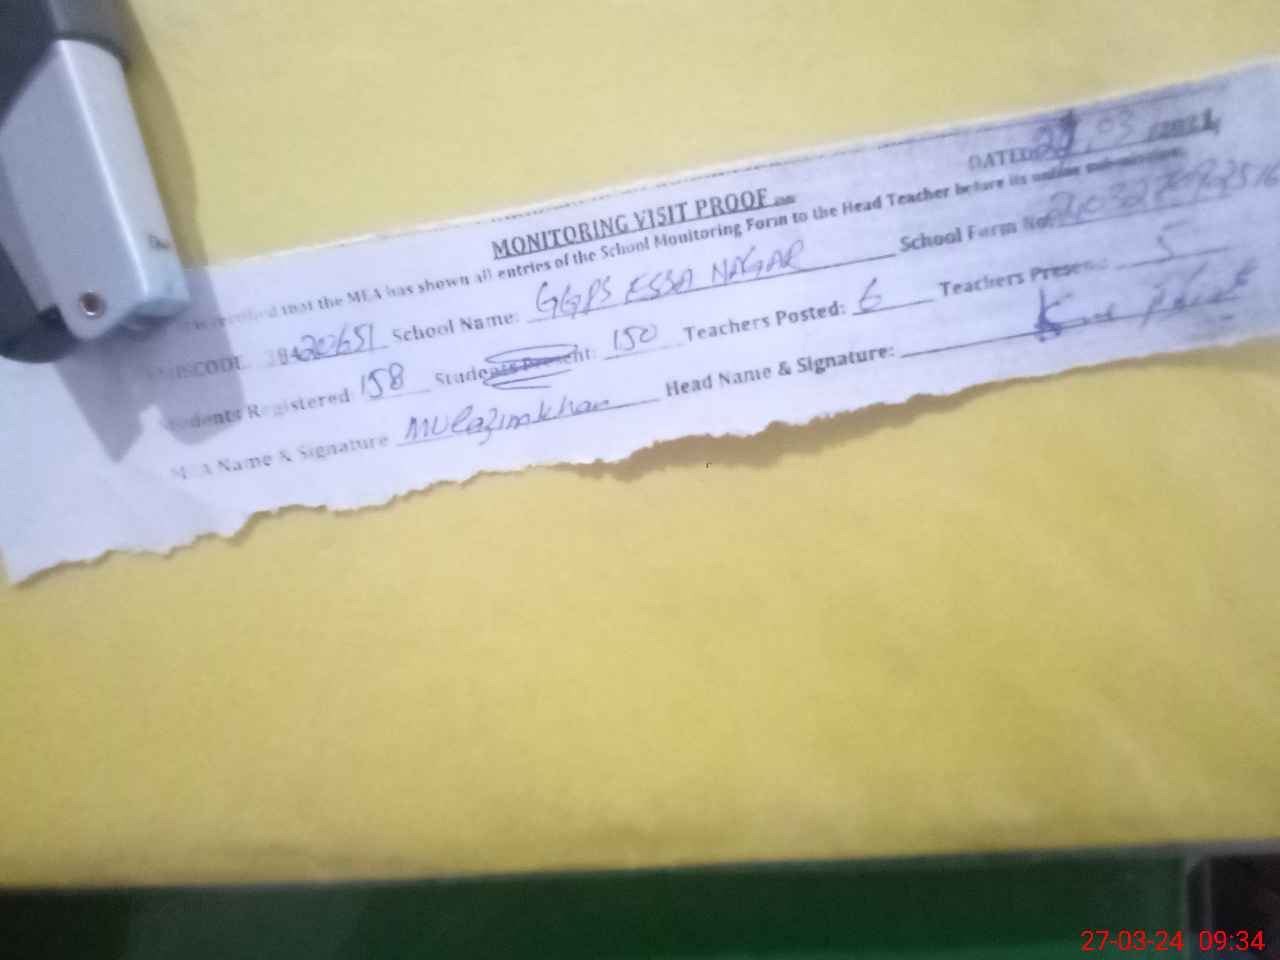 DATED 27.03 /2024
MONITORING VISIT PROOF
certified that the MEA has shown all entries of the School Monitoring Form to the Head Teacher before its online submission.
School Name: GGPS ESSA NAGAR School Form No:
Students Registered: 158 Students Present: 150 Teachers Posted: 6 Teachers Present: 5
MEA Name & Signature Mulazim khan Head Name & Signature:
27-03-24 09:34